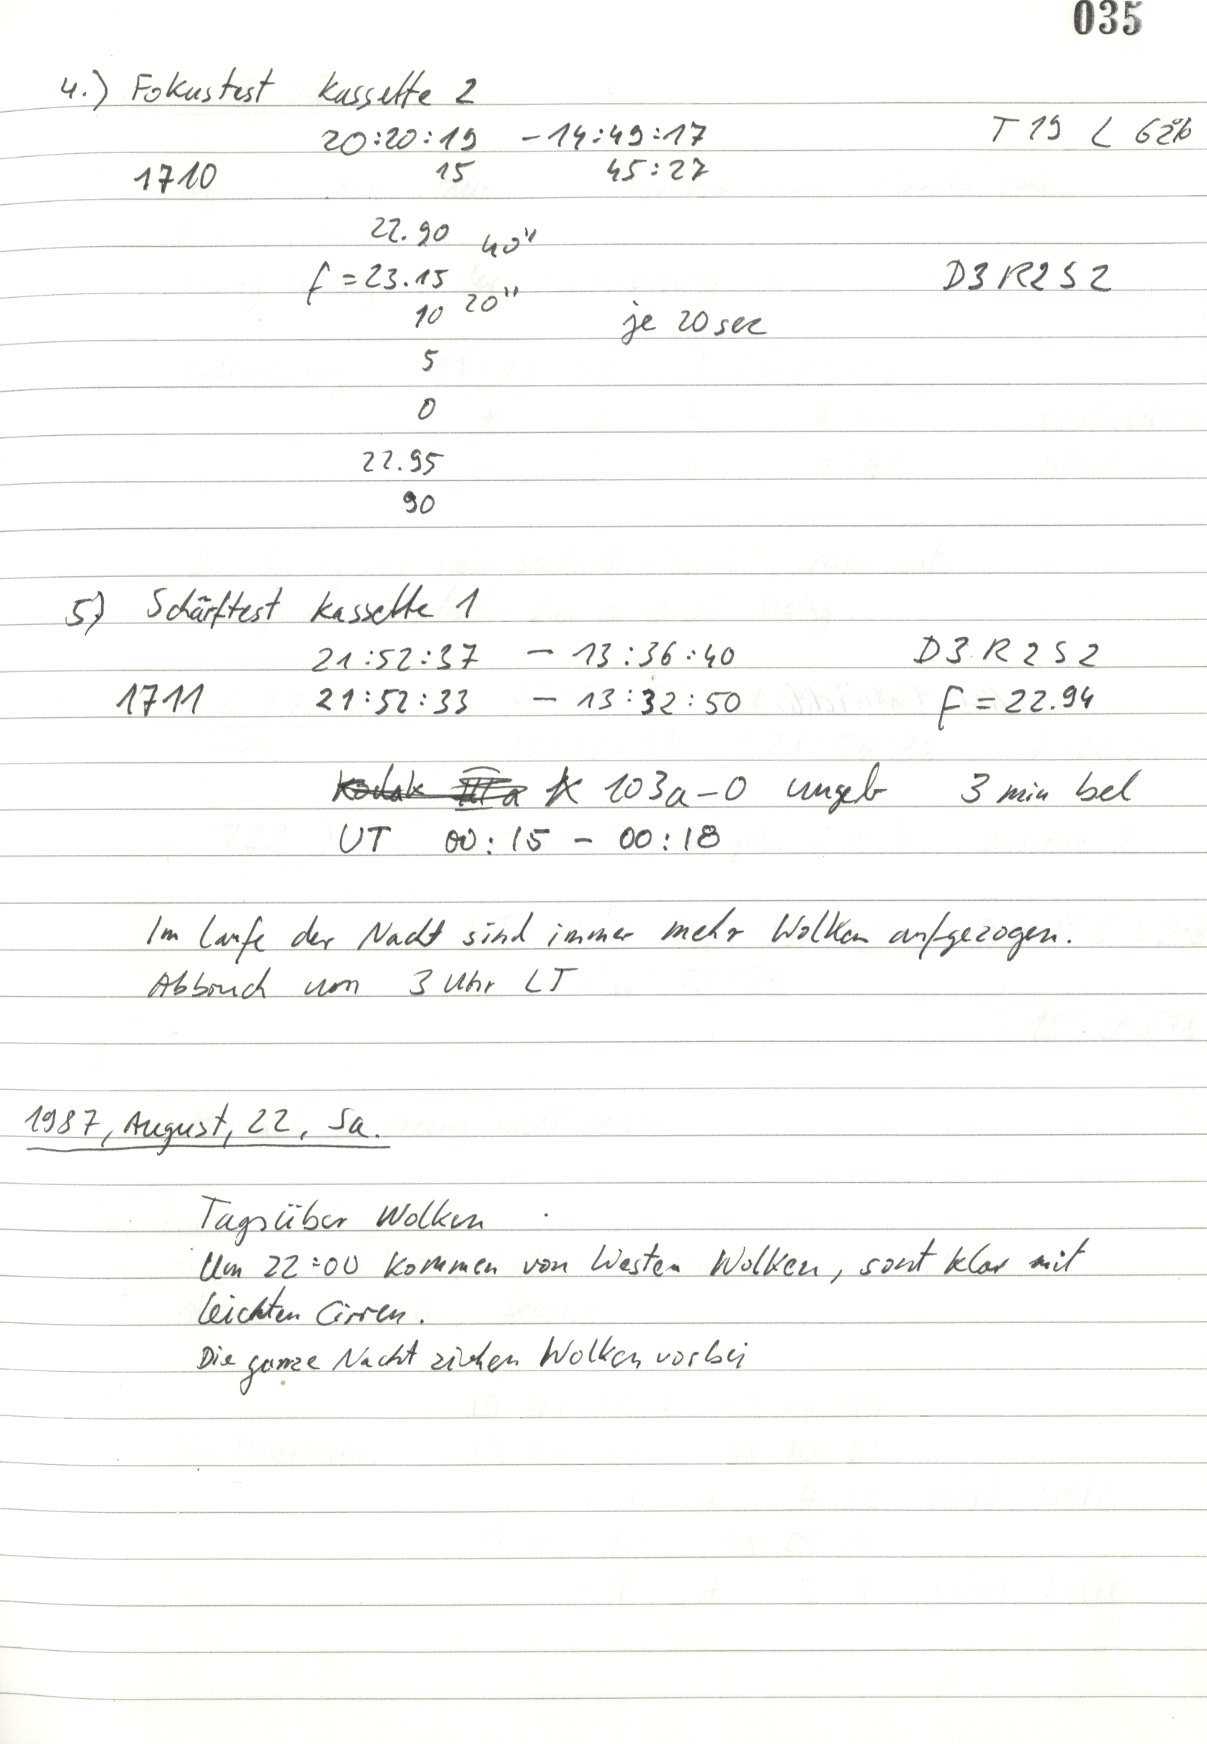 035
4.) Fokustest Kassette 2
20:20:19 -14:49:17 T 19 L 62%
1710 15 45:27
22.90 40"
f = 23.15 D3 R2 S2
10 20" je 20 sec
5
0
22.95
90
5) Schärftest Kassette 1
21:52:37 - 13:36:40 D3 R2 S2
1711 21:52:33 - 13:32:50 F = 22.94
Kodak IIIa K 103a-O ungeb 3 min bel
UT 00:15 - 00:18
Im Laufe der Nacht sind immer mehr Wolken aufgezogen.
Abbruch um 3 Uhr LT
1987, August, 22, Sa.
Tagsüber Wolken
Um 22:00 kommen von Westen Wolken, sont klar mit
leichten Cirren.
Die ganze Nacht ziehen Wolken vorbei